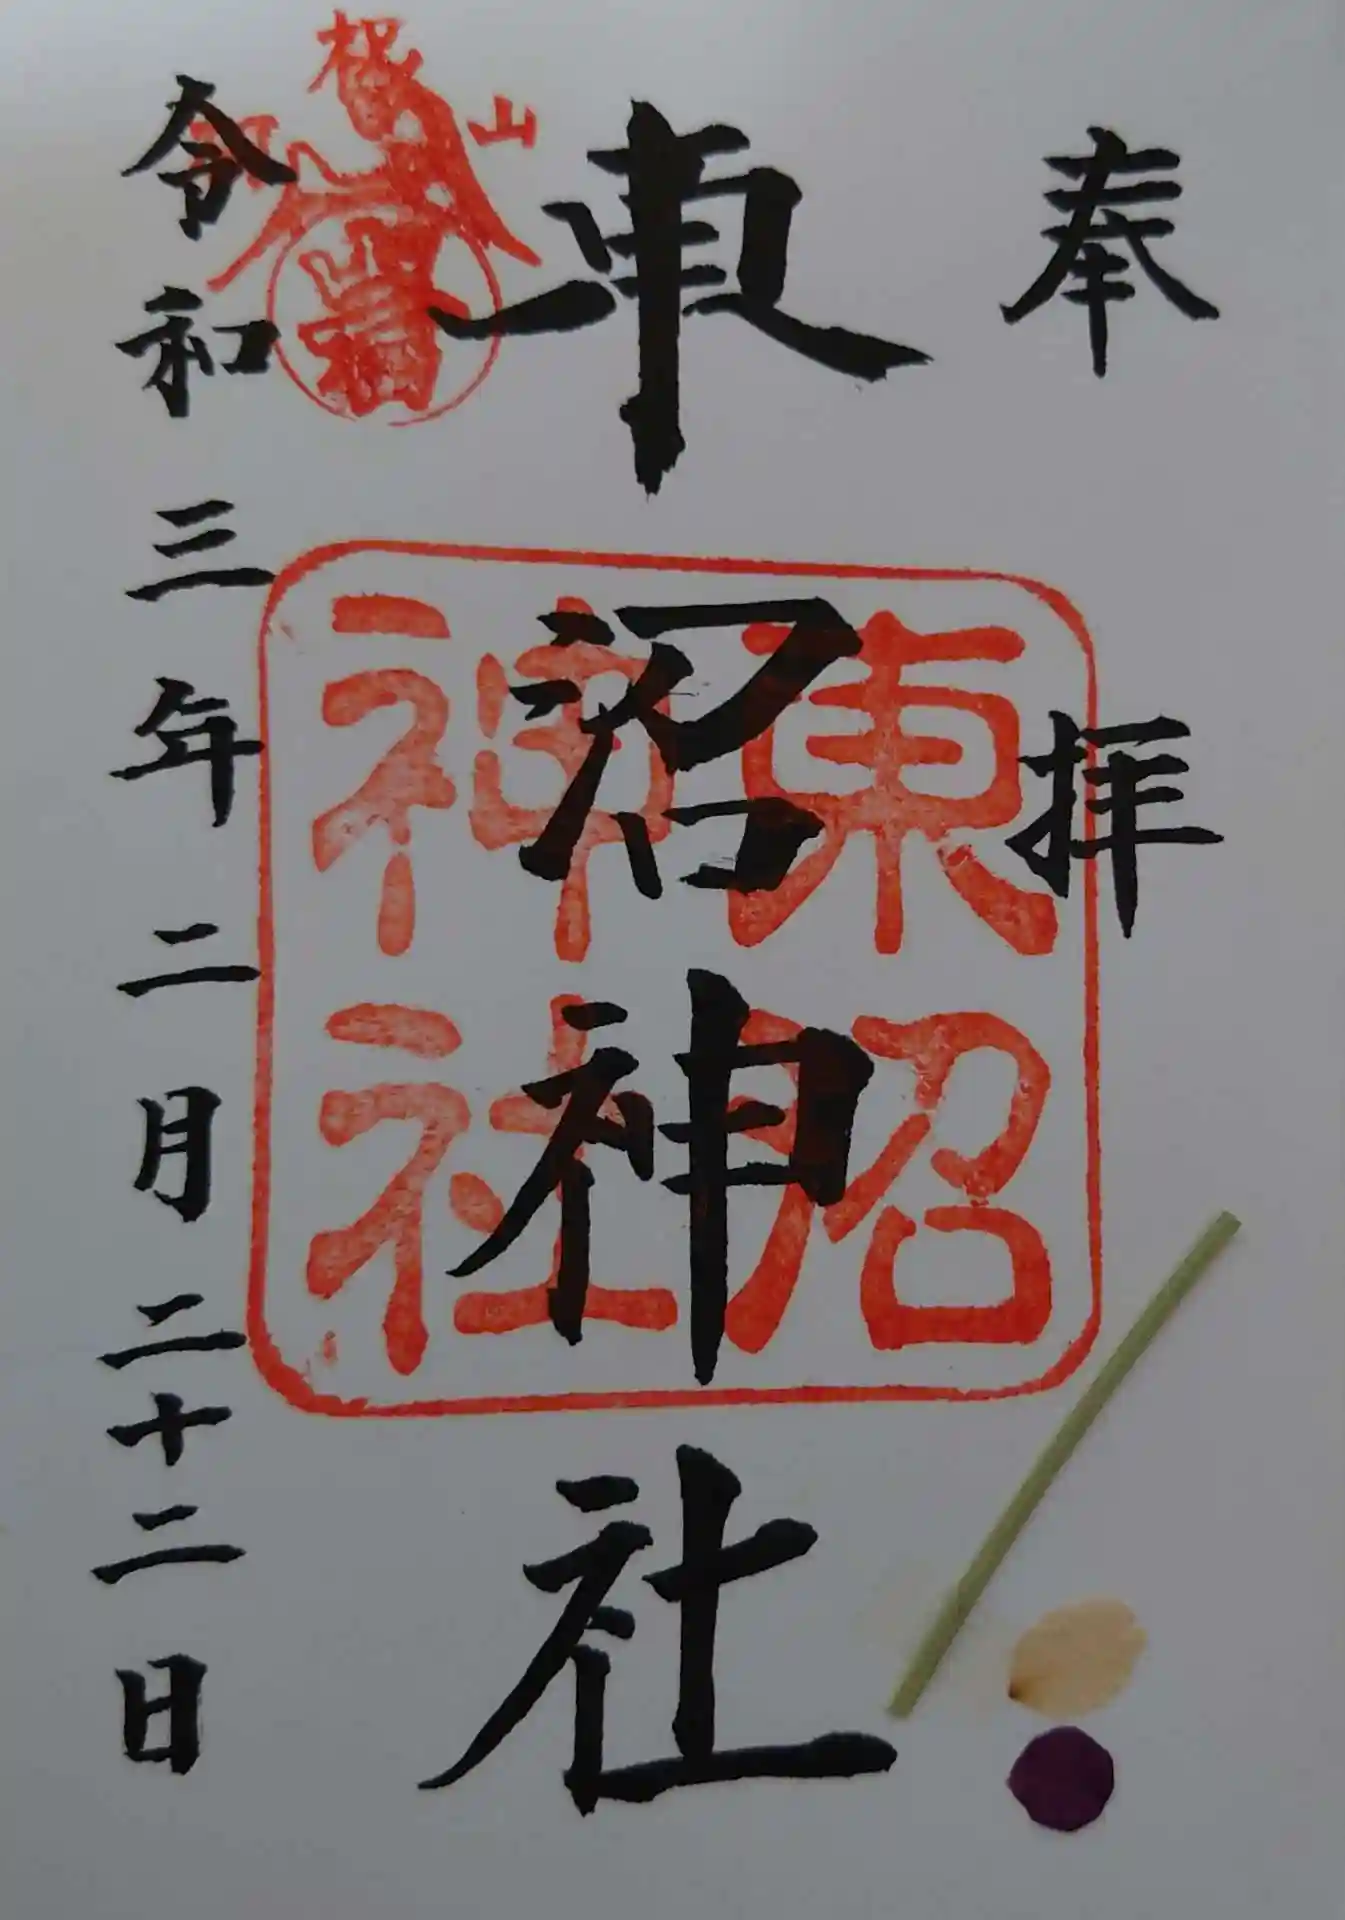 奉拝
東沼神社
東沼
神社
令和三年二月二十二日
山